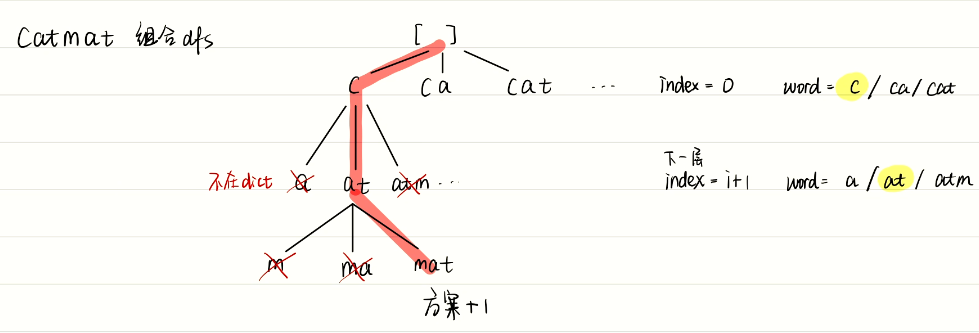 Catmat 组合dfs
[ ]
c ca cat ... index = 0 word = c / ca / cat
下一层
不在dict a at atm ... index = i+1 word = a / at / atm
m ma mat
方案+1